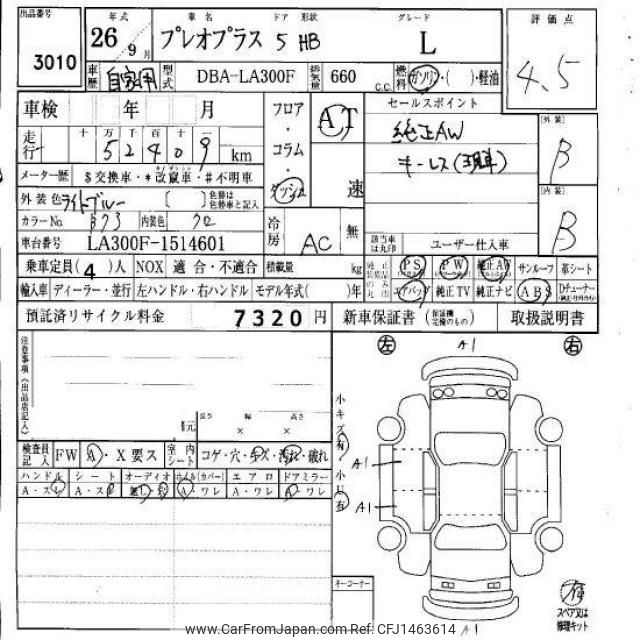 出品番号
3010
年式 車名 ドア 形状 グレード
26年 9月 プレオプラス 5 HB L
評価点
4.5
車歴 自家用 型式 DBA-LA300F 排気量 660 C.C. 燃料 ガソリン・( )・軽油
車検 年 月
フロア・コラム・ダッシュ
AT
速
セールスポイント
純正AW
キーレス(現車)
[外装]
B
[内装]
B
走行 十 万 千 百 十 一
52409 km
メーター歴 $交換車・*改竄車・#不明車
外装色 ライトブルー [ ] 色替は色替車と記入
カラーNo 内装色
車台番号 LA300F-1514601
冷房 AC 無
該当車は丸印 ユーザー仕入車
乗車定員( 4 )人 NOX 適合・不適合 積載量 kg
純正装備のみ丸印 PS PW 純正AW サンルーフ 革シート
輸入車 ディーラー・並行 左ハンドル・右ハンドル モデル年式( )年
エアバッグ 純正TV 純正ナビ ABS Dチューナー
預託済リサイクル料金 7320円 新車保証書(保証書完備のもの) 取扱説明書
注意事項(出品店記入)
長さ 幅 高さ
× ×
検査員記入 FW A・X要ス 室内シート コゲ・穴・キズ・汚れ・破れ
ハンドル シート オーディオ ホイル(カバー) エアロ ドアミラー
A・スレ A・スレ 無し・ A・ワレ A・ワレ A・ワレ
左 右
A1
小キズ有
小凹有
A1
A1
A1
キーコーナー
有
スペア又は
修理キット
www.CarFromJapan.com Ref: CFJ1463614